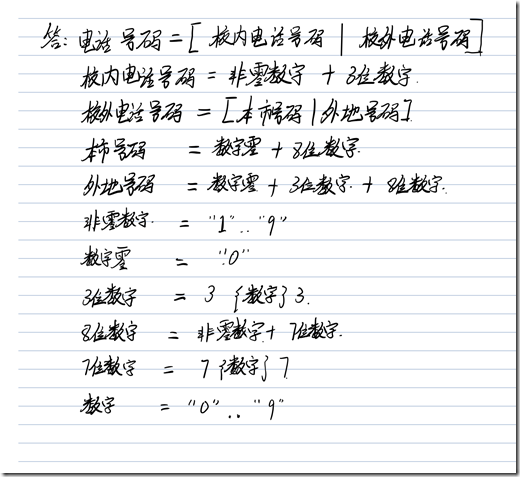 答: 电话号码 = [ 校内电话号码 | 校外电话号码 ]
校内电话号码 = 非零数字 + 3位数字.
校外电话号码 = [本市号码 | 外地号码].
本市号码 = 数字零 + 8位数字.
外地号码 = 数字零 + 3位数字. + 8位数字.
非零数字. = "1".."9"
数字零 = "0"
3位数字 = 3 {数字} 3.
8位数字 = 非零数字 + 7位数字.
7位数字 = 7 {数字} 7
数字 = "0".."9"